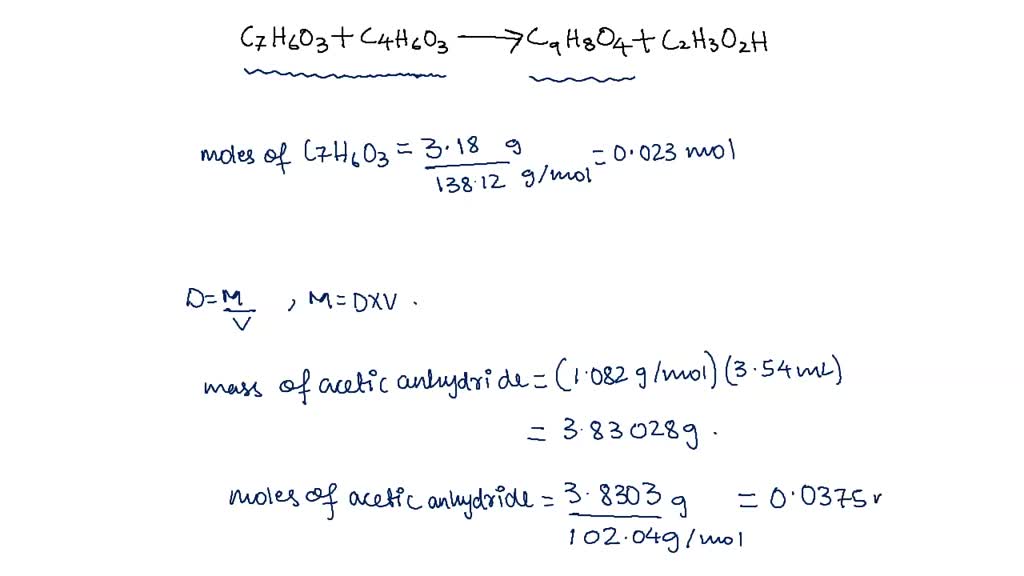 C7H6O3 + C4H6O3 ⟶ C9H8O4 + C2H3O2H
moles of C7H6O3 = 3.18 g / 138.12 g/mol = 0.023 mol
D = M/V , M = D×V .
mass of acetic anhydride = (1.082 g/mol) (3.54 mL)
= 3.83028g .
moles of acetic anhydride = 3.8303 g / 102.04g/mol = 0.0375